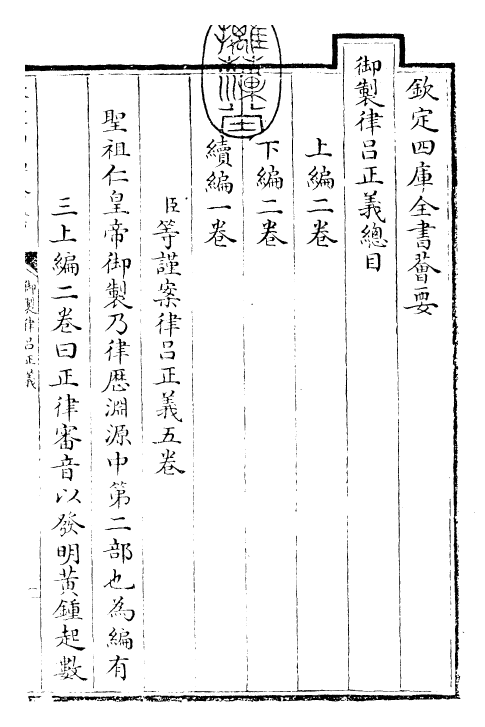 欽定四庫全書薈要
御製律呂正義總目
上編二卷
下編二卷
續編一卷
臣等謹案律呂正義五卷
聖祖仁皇帝御製乃律歷淵源中第二部也為編有
三上編二卷曰正律審音以發明黃鍾起數
御製律呂正義